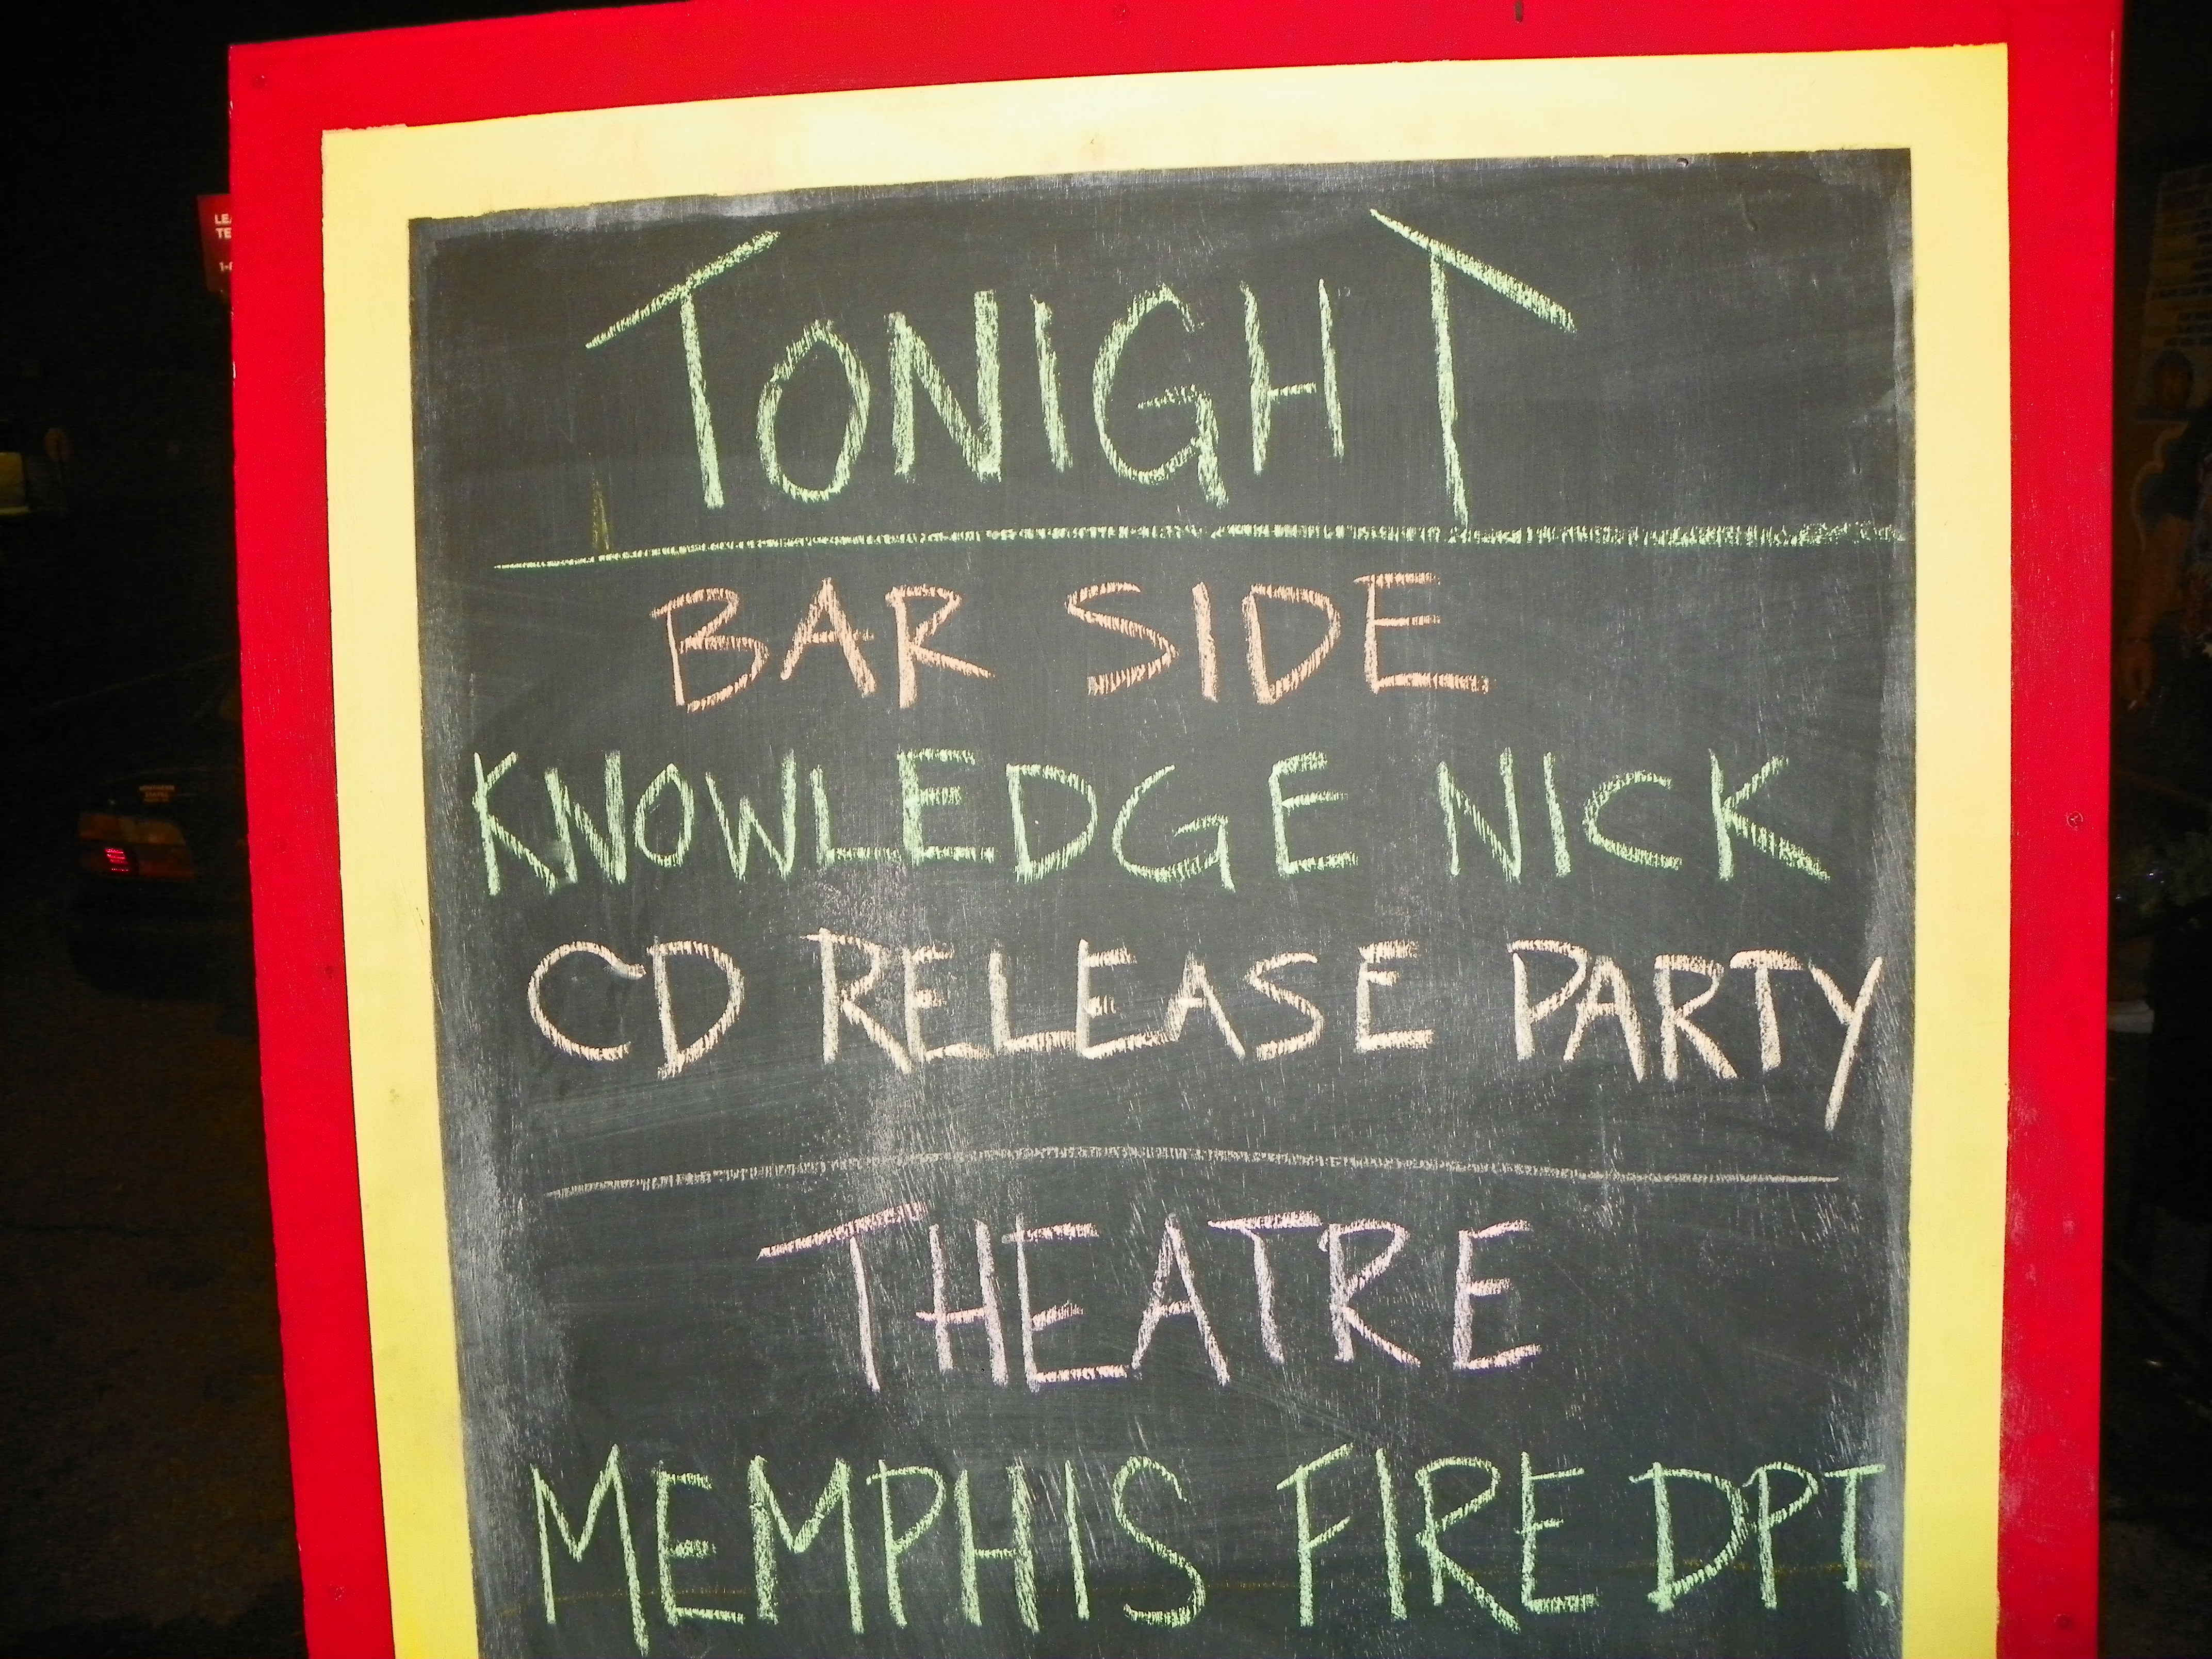 TONIGHT
BAR SIDE
KNOWLEDGE NICK
CD RELEASE PARTY
THEATRE
MEMPHIS FIRE DPT.